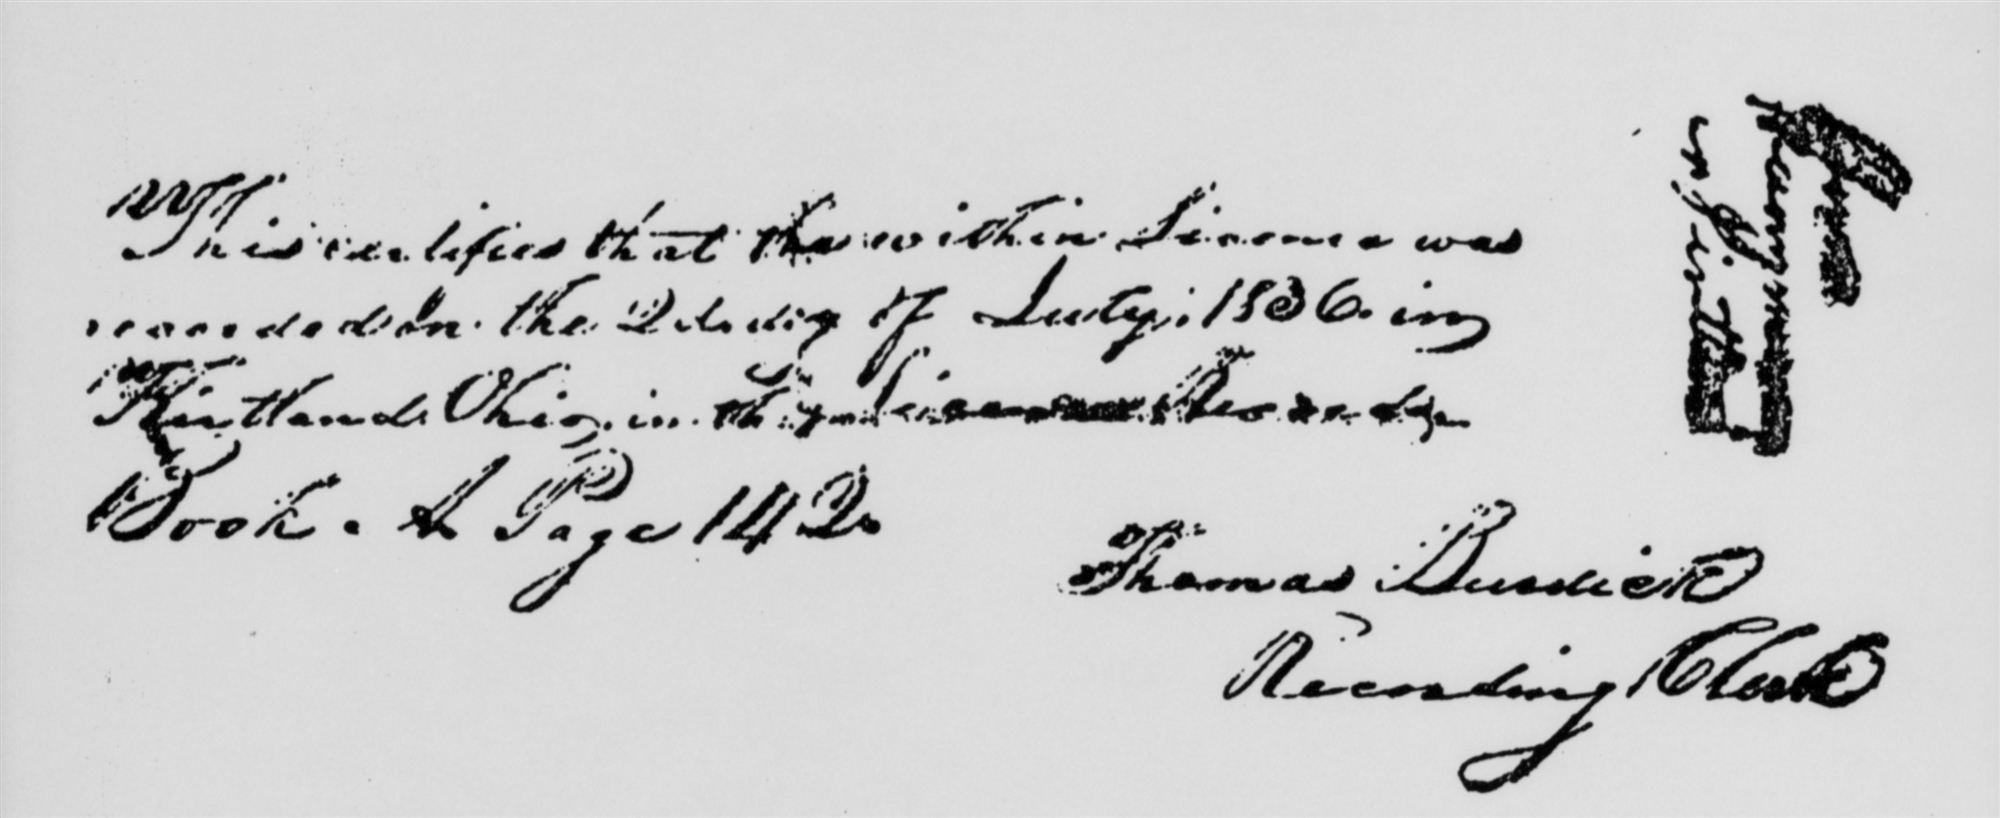 This certifies that the within License was
recorded in the 2d. day of July, 1836. in
Kirtland Ohio, in the License Records
Book. A Page 142.
Thomas Burdick
Recording Clerk